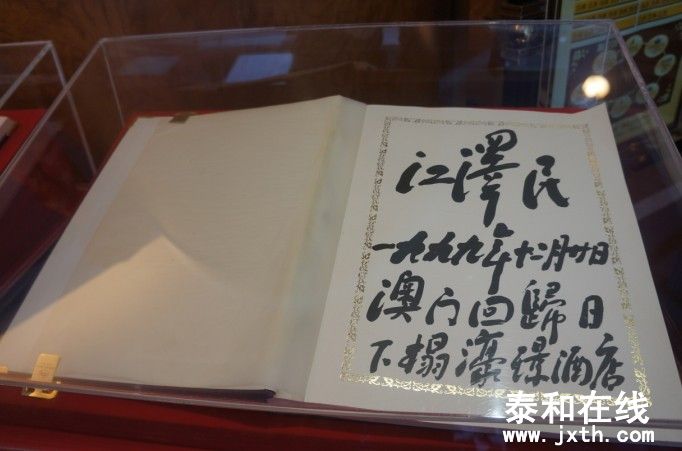 江澤民
一九九九年十二月廿日
澳门回歸日
下榻濠璟酒店
泰和在线
www.jxth.com